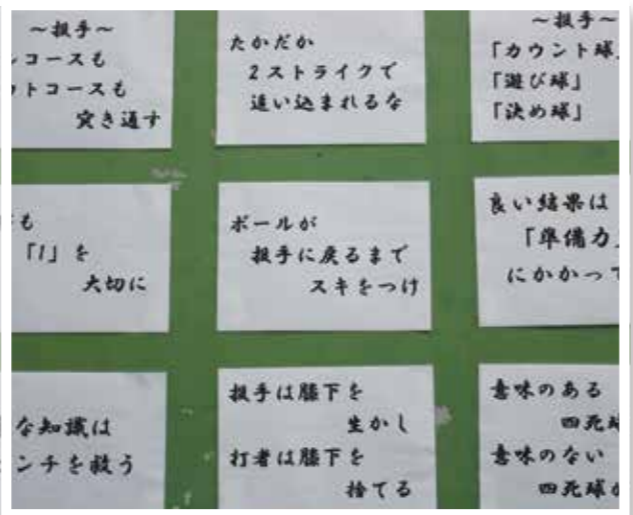 ～投手～
コースも
トコースも
突き通す
たかだか
2ストライクで
追い込まれるな
～投手～
「カウント球」
「遊び球」
「決め球」
も
「1」を
大切に
ボールが
投手に戻るまで
スキをつけ
良い結果は
「準備力
にかかって
な知識は
ンチを救う
投手は膝下を
生かし
打者は膝下を
捨てる
意味のある
四死球
意味のない
四死球が